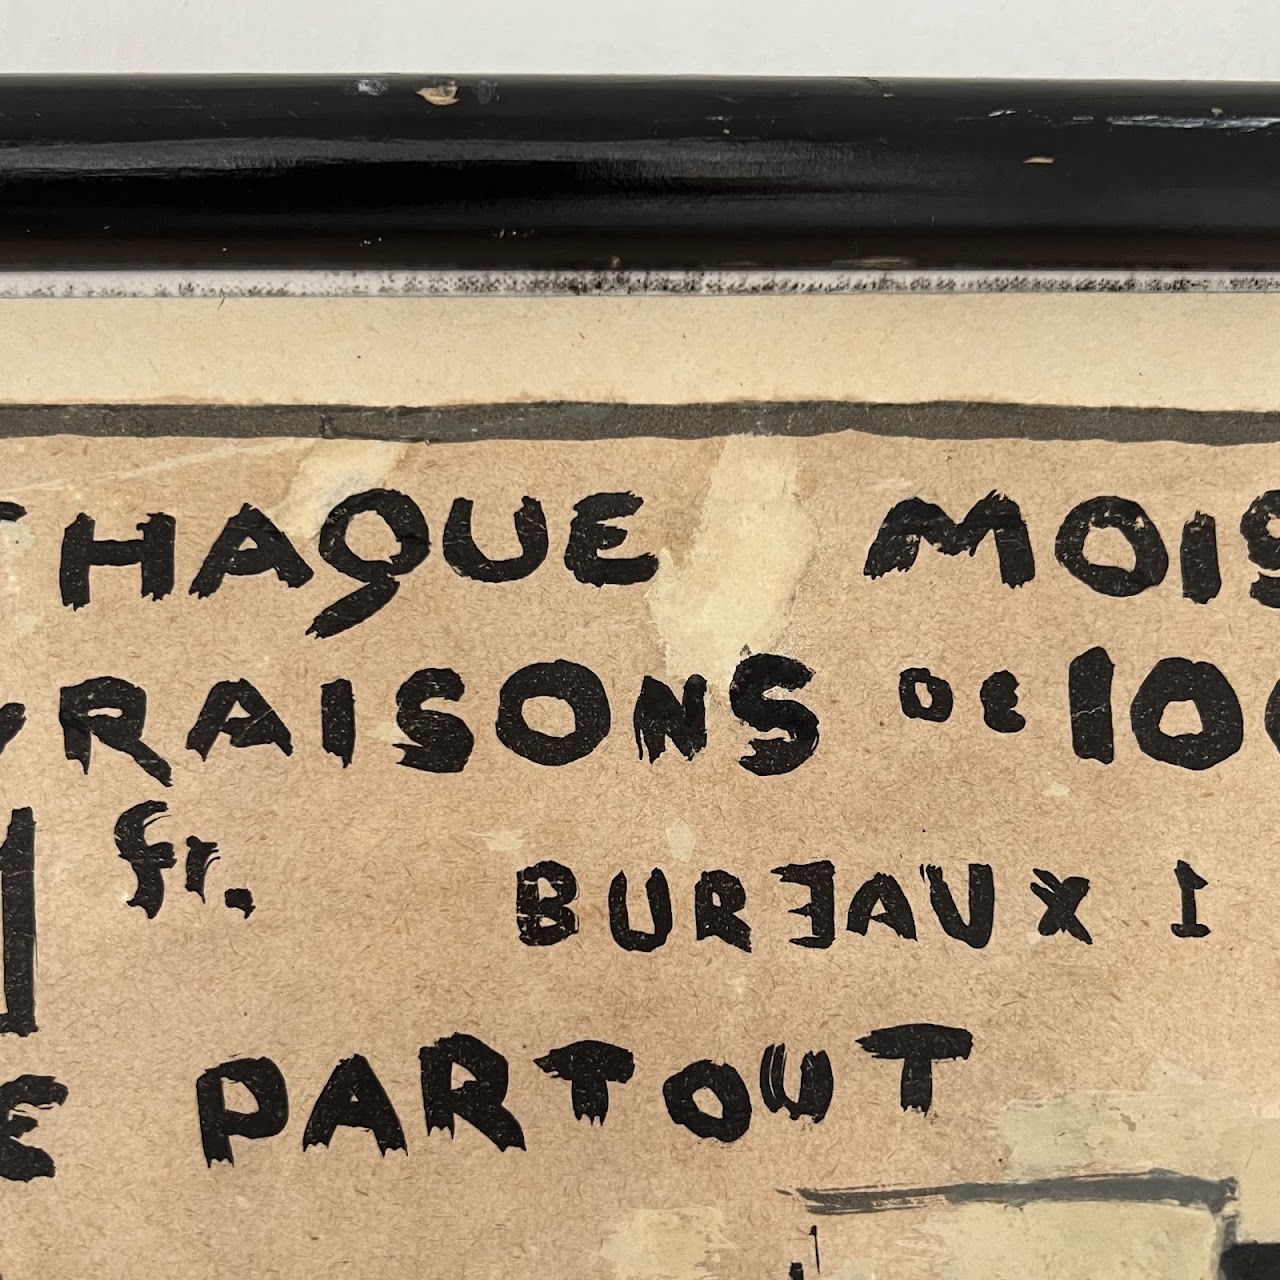 CHAQUE MOIS
VRAISONS DE 100
1 fr. BUREAUX 1
E PARTOUT